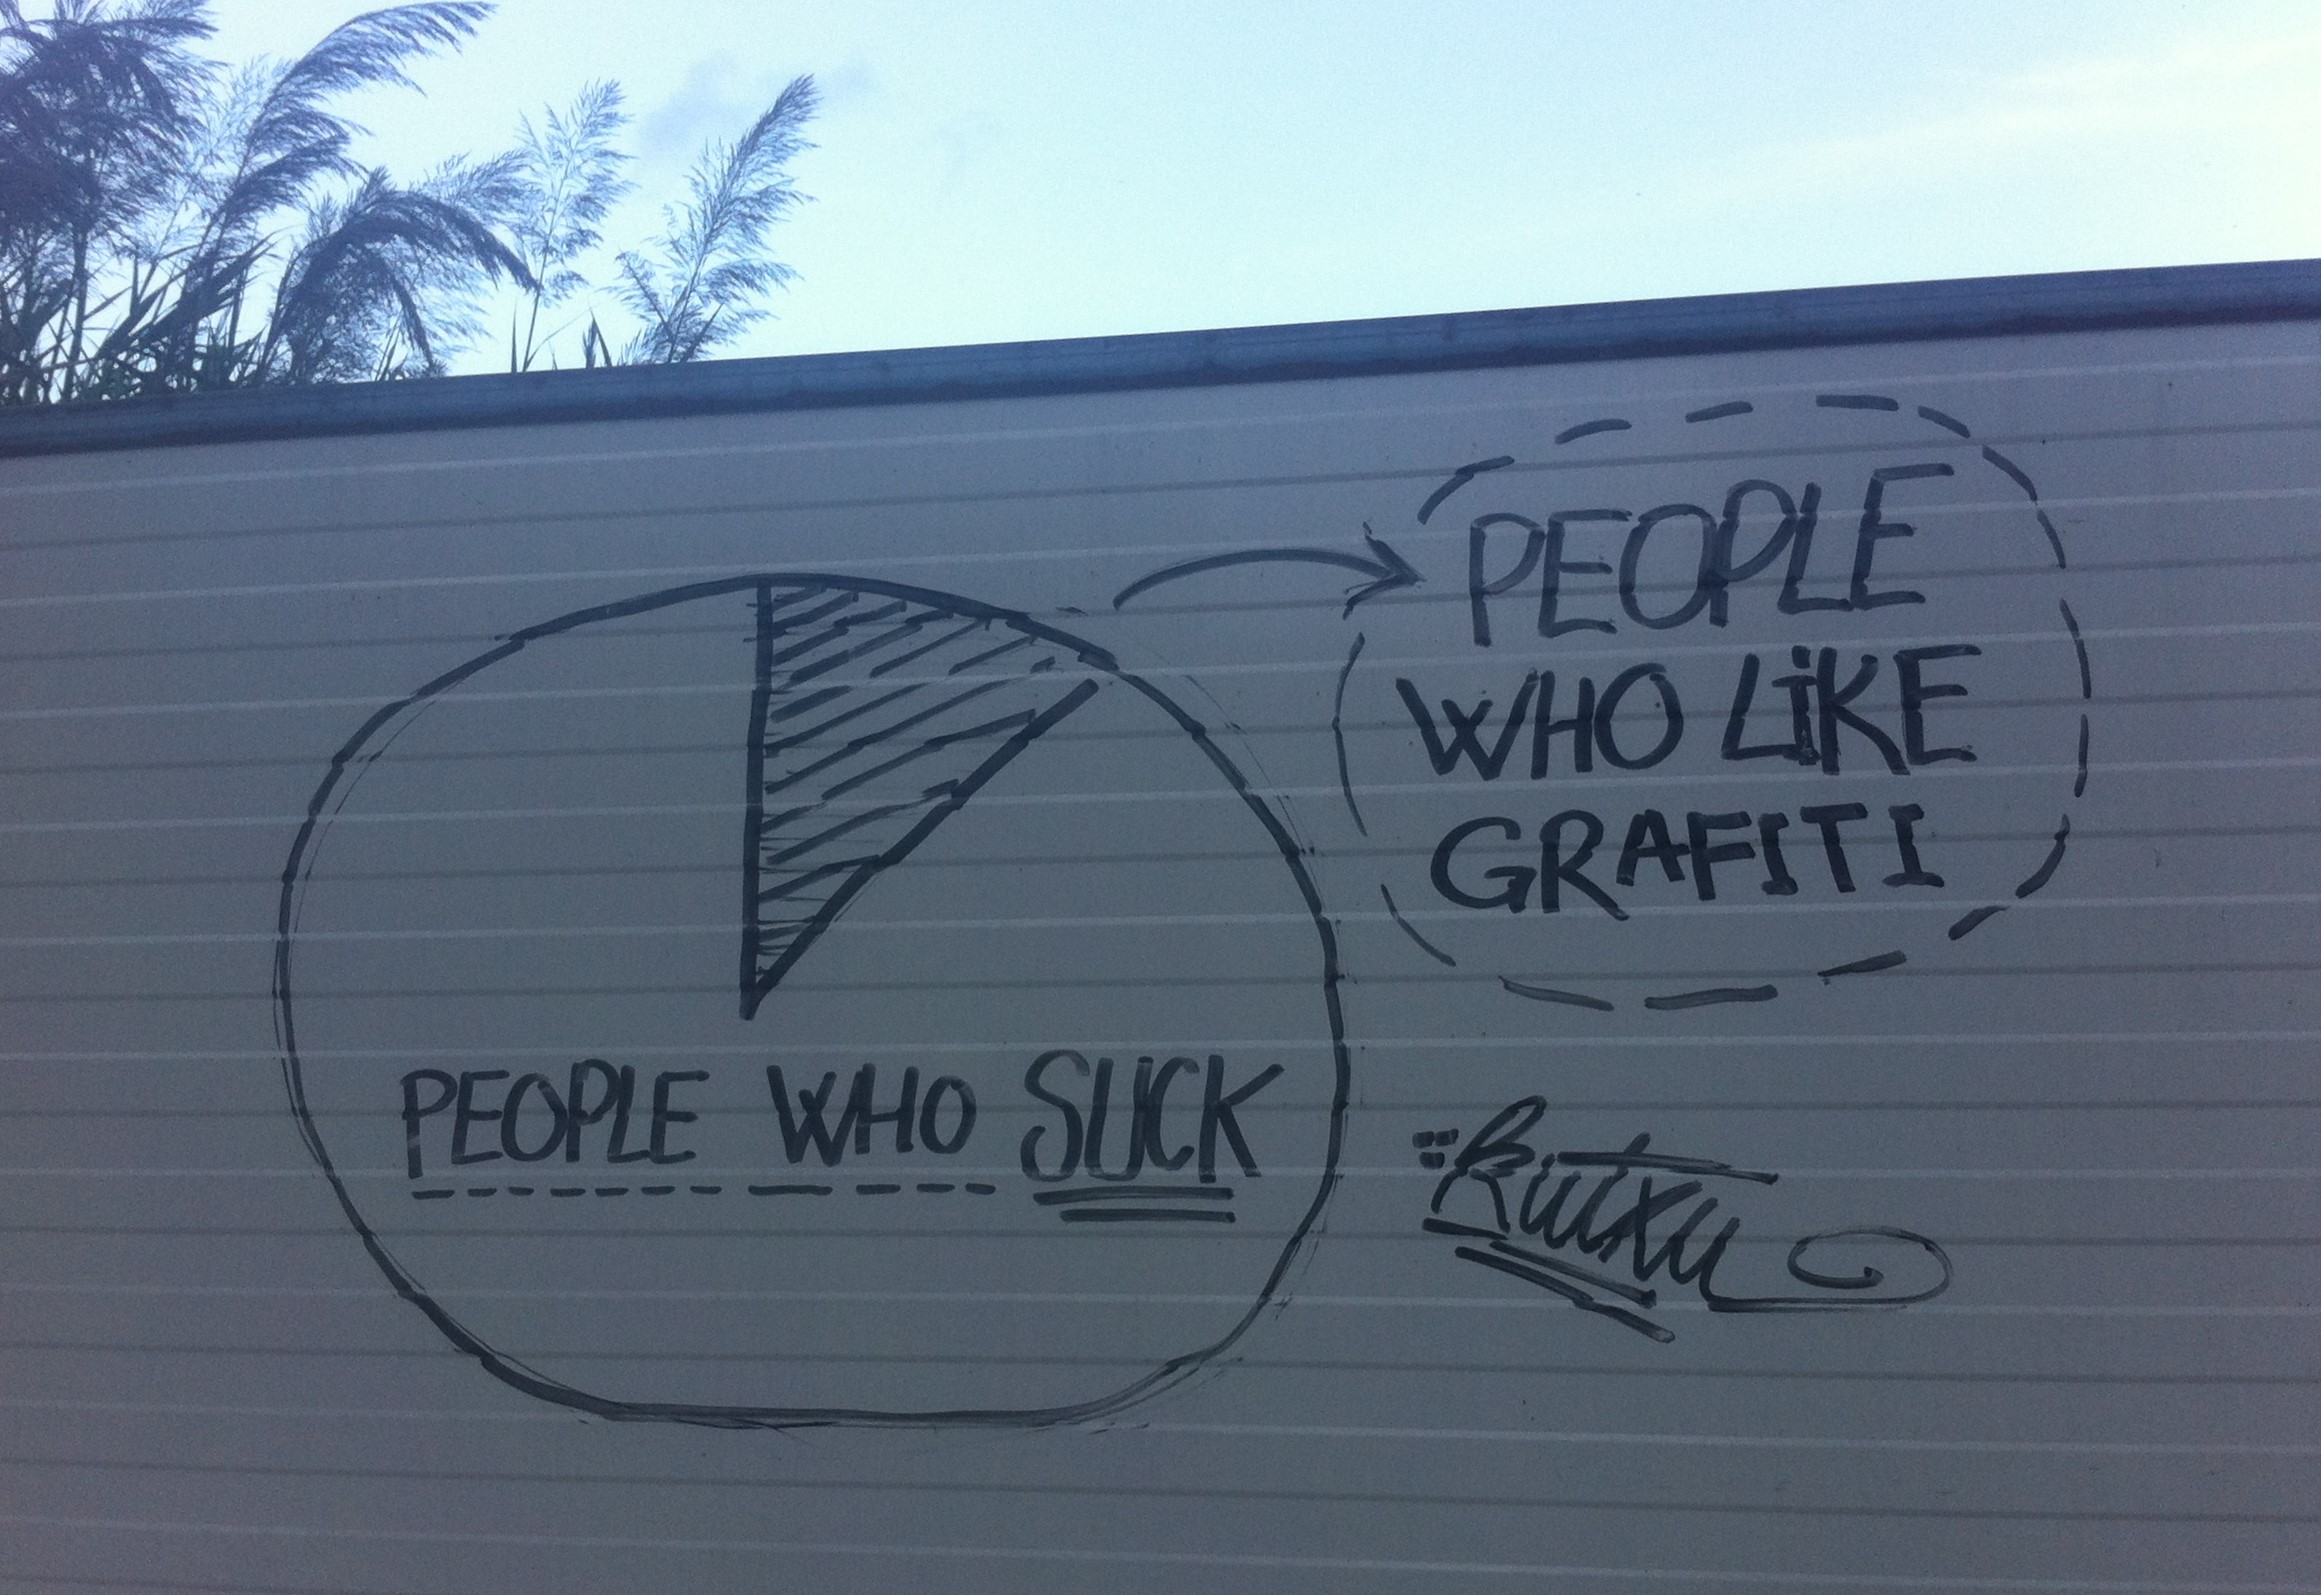 PEOPLE
WHO LiKE
GRAFITI
PEOPLE WHO SUCK
Kutxu